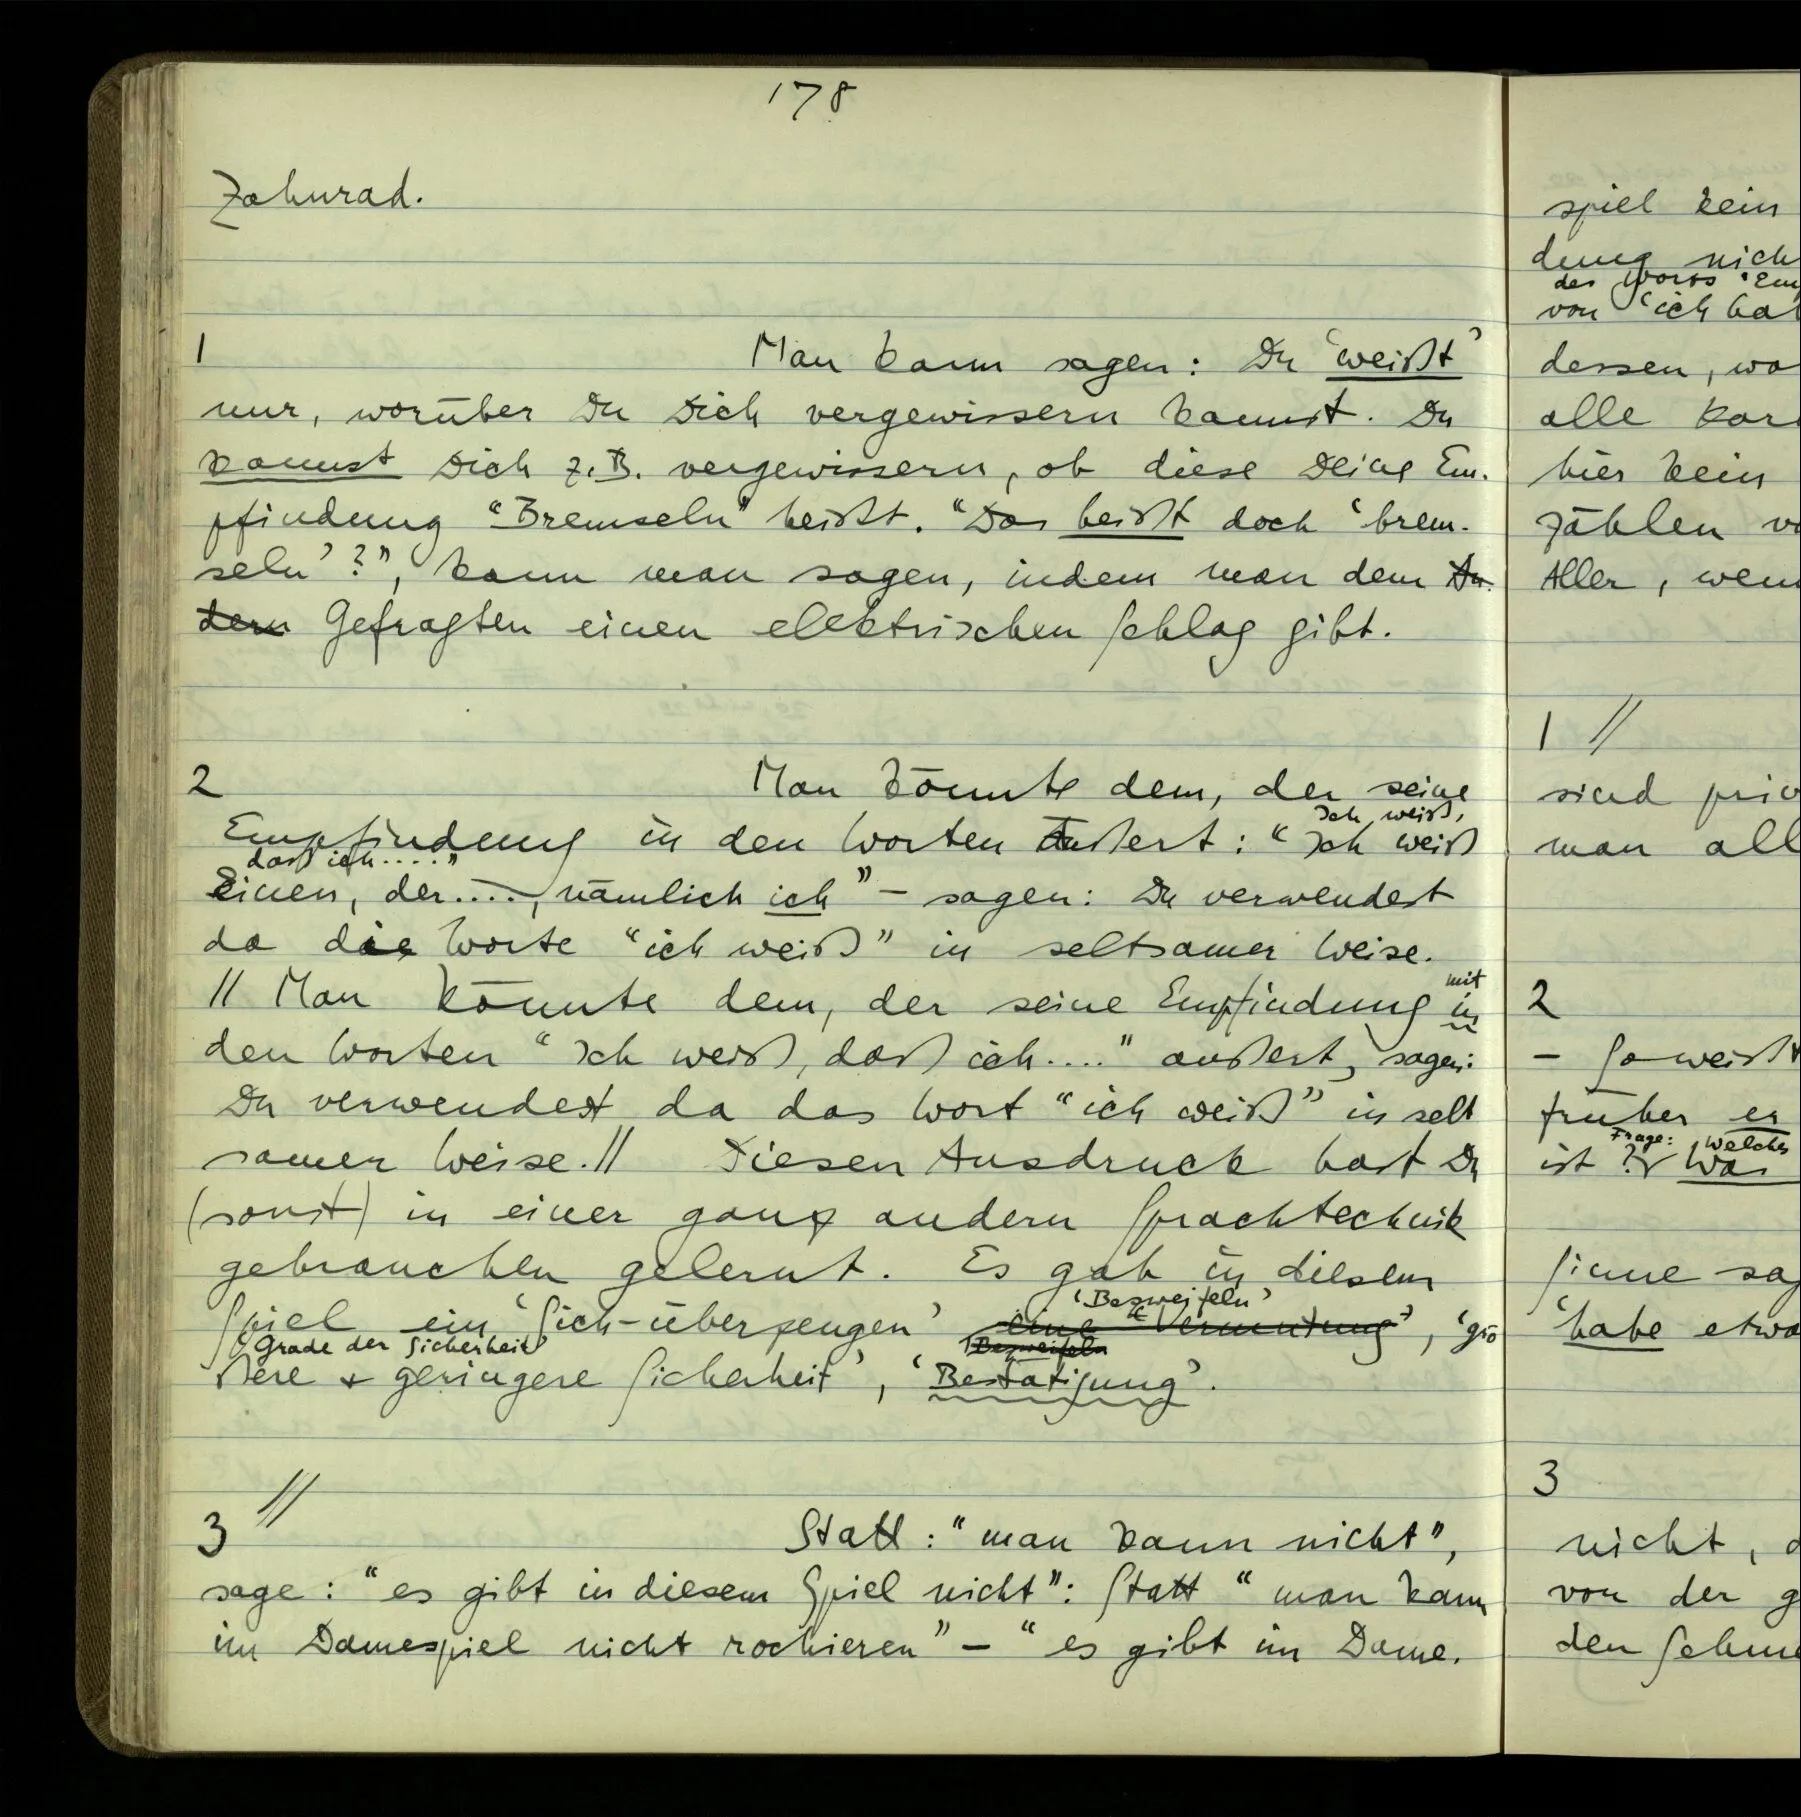 178
Zahnrad.
1 Man kann sagen: Du ‘weißt’
nur, worüber Du Dich vergewissern kannst. Du
kannst Dich z.B. vergewissern, ob diese Deine Em-
pfindung “Bremseln” heißt. “Das heißt doch ‘brem-
seln’?”, kann man sagen, indem man dem An-
dern Gefragten einen elektrischen Schlag gibt.
2 Man könnte dem, der seine
Ich weiß,
Empfindung in den Worten äußert: “Ich weiß
daß ich.....”
Einen, der...., nämlich ich” – sagen: Du verwendest
da die Worte “ich weiß” in seltsamer Weise.
// Man könnte dem, der seine Empfindung in
mit
den Worten “Ich weiß, daß ich....” äußert, sagen:
Du verwendest da das Wort “ich weiß” in selt
samer Weise.// Diesen Ausdruck hast Du
(sonst) in einer ganz andern Sprachtechnik
gebrauchen gelernt. Es gab in diesem
‘Bezweifeln’
Spiel ein ‘Sich-überzeugen’ eine “Vermutung”, ‘grö
Grade der Sicherheit’ Bezweifeln
ßere & geringere Sicherheit’, ‘Bestätigung’.
3 // Statt: “man kann nicht”,
sage: “es gibt in diesem Spiel nicht”: Statt “man kann
im Damespiel nicht rochieren” – “es gibt im Dame-
spiel kein
dung nich
des Worts ‘Em
von ‘ich hab
dessen, wa
alle Kar
hier kein
zählen vo
Aller, wenn
1 //
sind priv
man all
2
– So weißt
früher er
Frage: Welches
ist ? Was
Sinne sag
‘habe etwa
3
nicht, d
von der g
den Schme